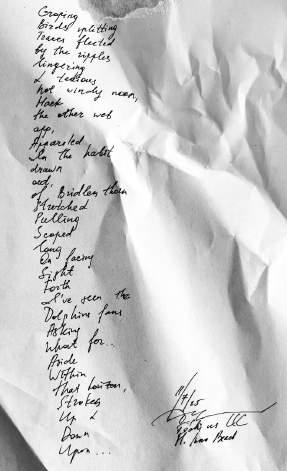 Groping
Birds splitting
Traces flected
by the ripples
lingering
& tedious
hot windy noon,
Mark
the other web
app,
Apparated
In the habit
drawn
out,
Bridles then
Stretched
Pulling
Scoped
long
On facing
Sight
Forth
I've seen the
Dolphins fans
Asking
What for...
Aside
Within
that horizon,
Strokes
Up &
Down
Upon...
11/7/25